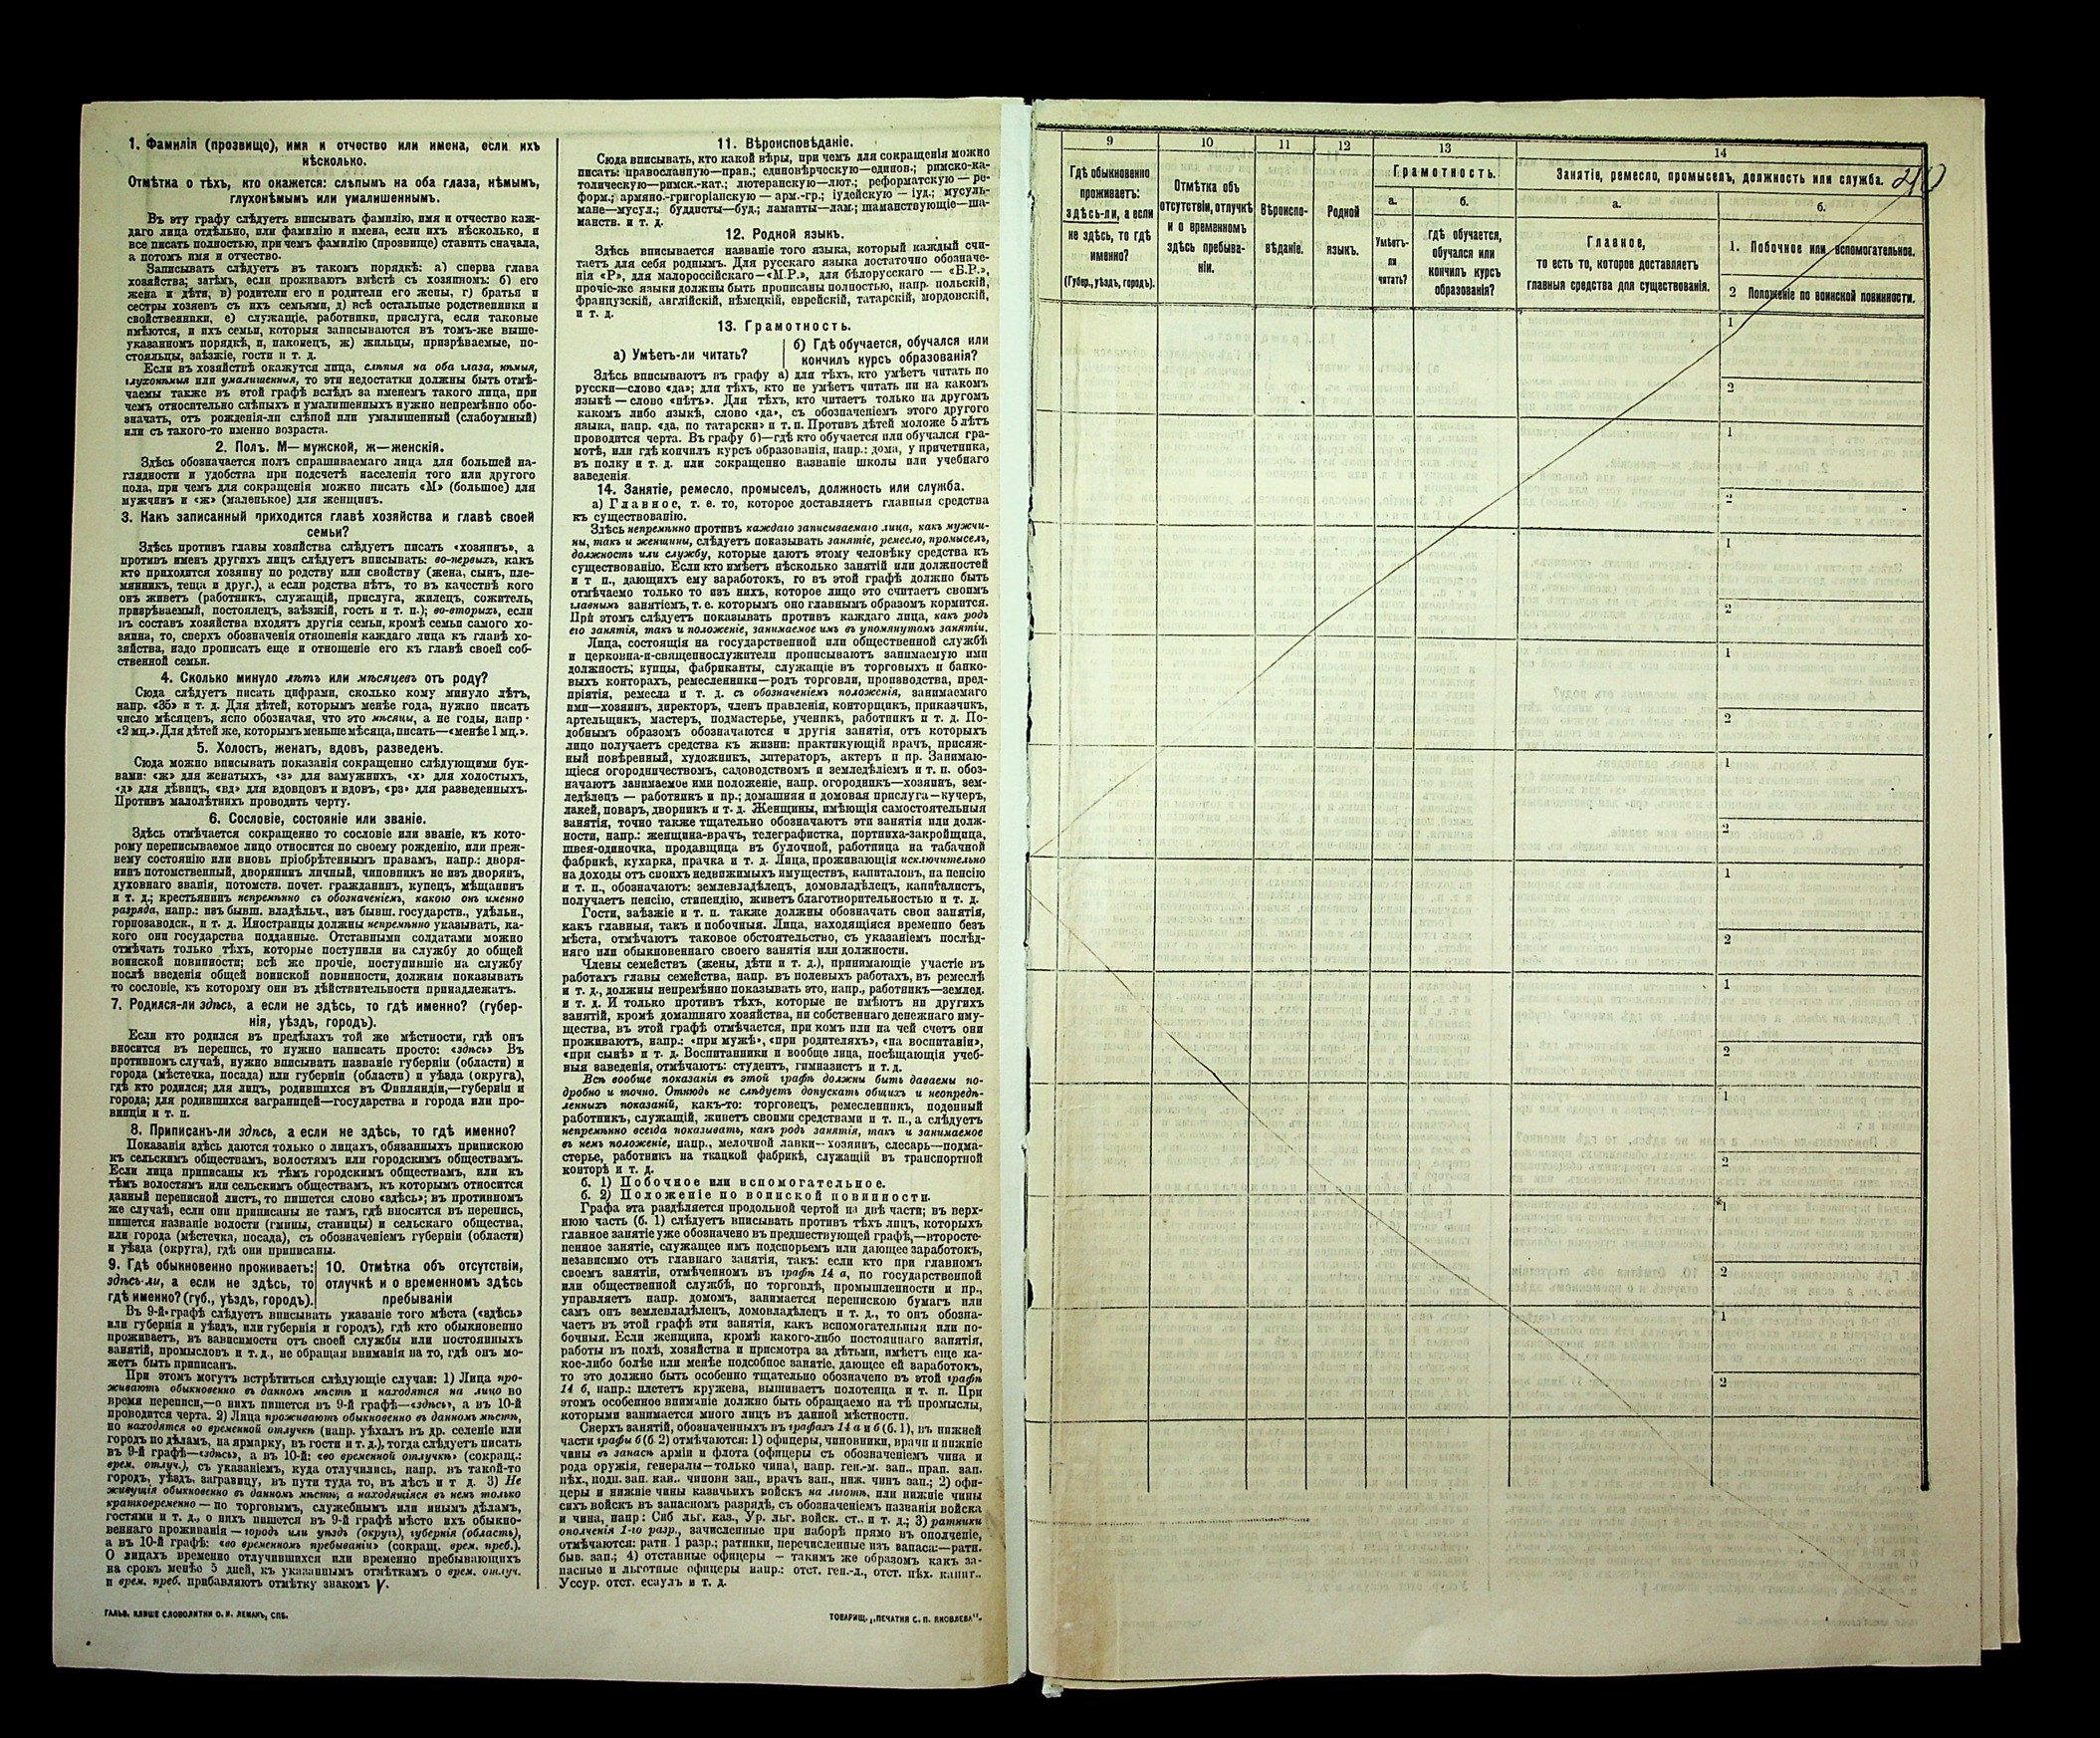 1. Фамилія (прозвище), имя и отчество или имена, если ихъ
нѣсколько.
Отмѣтка о тѣхъ, кто окажется: слѣпымъ на оба глаза, нѣмымъ,
глухонѣмымъ или умалишеннымъ.
Въ эту графу слѣдуетъ вписывать фамилію, имя и отчество каж-
даго лица отдѣльно, или фамилію и имена, если ихъ нѣсколько, и
все писать полностью, при чемъ фамилію (прозвище) ставить сначала,
а потомъ имя и отчество.
Записывать слѣдуетъ въ такомъ порядкѣ: а) сперва глава
хозяйства; затѣмъ, если проживаютъ вмѣстѣ съ хозяиномъ: б) его
жена и дѣти, в) родители его и родители его жены, г) братья и
сестры хозяевъ съ ихъ семьями, д) всѣ остальные родственники и
свойственники, е) служащіе, работники, прислуга, если таковые
имѣются, и ихъ семьи, которыя записываются въ томъ-же выше-
указанномъ порядкѣ, и, наконецъ, ж) жильцы, призрѣваемые, по-
стояльцы, заѣзжіе, гости и т. д.
Если въ хозяйствѣ окажутся лица, слѣпыя на оба глаза, нѣмыя,
глухонѣмыя или умалишенныя, то эти недостатки должны быть отмѣ-
чаемы также въ этой графѣ вслѣдъ за именемъ такого лица, при
чемъ относительно слѣпыхъ и умалишенныхъ нужно непремѣнно обо-
значать, отъ рожденія-ли слѣпой или умалишенный (слабоумный)
или съ такого-то именно возраста.
2. Полъ. М— мужской, ж—женскій.
Здѣсь обозначается полъ спрашиваемаго лица для большей на-
глядности и удобства при подсчетѣ населенія того или другого
пола, при чемъ для сокращенія можно писать «М» (большое) для
мужчинъ и «ж» (маленькое) для женщинъ.
3. Какъ записанный приходится главѣ хозяйства и главѣ своей
семьи?
Здѣсь противъ главы хозяйства слѣдуетъ писать «хозяинъ», а
противъ именъ другихъ лицъ слѣдуетъ вписывать: во-первыхъ, какъ
кто приходится хозяину по родству или свойству (жена, сынъ, пле-
мянникъ, теща и друг.), а если родства нѣтъ, то въ качествѣ кого
онъ живетъ (работникъ, служащій, прислуга, жилецъ, сожитель,
призрѣваемый, постоялецъ, заѣзжій, гость и т. п.); во-вторыхъ, если
въ составъ хозяйства входятъ другія семьи, кромѣ семьи самого хо-
зяина, то, сверхъ обозначенія отношенія каждаго лица къ главѣ хо-
зяйства, надо прописать еще и отношеніе его къ главѣ своей соб-
ственной семьи.
4. Сколько минуло лѣтъ или мѣсяцевъ отъ роду?
Сюда слѣдуетъ писать цифрами, сколько кому минуло лѣтъ,
напр. «35» и т. д. Для дѣтей, которымъ менѣе года, нужно писать
число мѣсяцевъ, ясно обозначая, что это мѣсяцы, а не годы, напр.
«2 мц.». Для дѣтей же, которымъ меньше мѣсяца, писать—«менѣе 1 мц.».
5. Холостъ, женатъ, вдовъ, разведенъ.
Сюда можно вписывать показанія сокращенно слѣдующими бук-
вами: «ж» для женатыхъ, «з» для замужнихъ, «х» для холостыхъ,
«д» для дѣвицъ, «вд» для вдовцовъ и вдовъ, «рз» для разведенныхъ.
Противъ малолѣтнихъ проводить черту.
6. Сословіе, состояніе или званіе.
Здѣсь отмѣчается сокращенно то сословіе или званіе, къ кото-
рому переписываемое лицо относится по своему рожденію, или преж-
нему состоянію или вновь пріобрѣтеннымъ правамъ, напр.: дворя-
нинъ потомственный, дворянинъ личный, чиновникъ не изъ дворянъ,
духовнаго званія, потомств. почет. гражданинъ, купецъ, мѣщанинъ
и т. д.; крестьянинъ непремѣнно съ обозначеніемъ, какого онъ именно
разряда, напр.: изъ бывш. владѣльч., изъ бывш. государств., удѣльн.,
горнозаводск., и т. д. Иностранцы должны непремѣнно указывать, ка-
кого они государства подданные. Отставными солдатами можно
отмѣчать только тѣхъ, которые поступили на службу до общей
воинской повинности; всѣ же прочіе, поступившіе на службу
послѣ введенія общей воинской повинности, должны показывать
то сословіе, къ которому они въ дѣйствительности принадлежатъ.
7. Родился-ли здѣсь, а если не здѣсь, то гдѣ именно? (губер-
нія, уѣздъ, городъ).
Если кто родился въ предѣлахъ той же мѣстности, гдѣ онъ
вносится въ перепись, то нужно написать просто: «здѣсь» Въ
противномъ случаѣ, нужно вписывать названіе губерніи (области) и
города (мѣстечка, посада) или губерніи (области) и уѣзда (округа),
гдѣ кто родился; для лицъ, родившихся въ Финляндіи,—губерніи и
города; для родившихся заграницей—государства и города или про-
винціи и т. п.
8. Приписанъ-ли здѣсь, а если не здѣсь, то гдѣ именно?
Показанія здѣсь даются только о лицахъ, обязанныхъ припискою
къ сельскимъ обществамъ, волостямъ или городскимъ обществамъ.
Если лица приписаны къ тѣмъ городскимъ обществамъ, или къ
тѣмъ волостямъ или сельскимъ обществамъ, къ которымъ относится
данный переписной листъ, то пишется слово «здѣсь»; въ противномъ
же случаѣ, если они приписаны не тамъ, гдѣ вносятся въ перепись,
пишется названіе волости (гмины, станицы) и сельскаго общества,
или города (мѣстечка, посада), съ обозначеніемъ губерніи (области)
и уѣзда (округа), гдѣ они приписаны.
9. Гдѣ обыкновенно проживаетъ:
здѣсь-ли, а если не здѣсь, то
гдѣ именно? (губ., уѣздъ, городъ).
10. Отмѣтка объ отсутствіи,
отлучкѣ и о временномъ здѣсь
пребываніи
Въ 9-й графѣ слѣдуетъ вписывать указаніе того мѣста («здѣсь»
или губернія и уѣздъ, или губернія и городъ), гдѣ кто обыкновенно
проживаетъ, въ зависимости отъ своей службы или постоянныхъ
занятій, промысловъ и т. д., не обращая вниманія на то, гдѣ онъ мо-
жетъ быть приписанъ.
При этомъ могутъ встрѣтиться слѣдующіе случаи: 1) Лица про-
живаютъ обыкновенно въ данномъ мѣстѣ и находятся на лицо во
время переписи,—о нихъ пишется въ 9-й графѣ—«здѣсь», а въ 10-й
проводится черта. 2) Лица проживаютъ обыкновенно въ данномъ мѣстѣ,
но находятся во временной отлучкѣ (напр. уѣхалъ въ др. селеніе или
городъ по дѣламъ, на ярмарку, въ гости и т. д.), тогда слѣдуетъ писать
въ 9-й графѣ—«здѣсь», а въ 10-й: «во временной отлучкѣ» (сокращ.:
врем. отлуч.), съ указаніемъ, куда отлучились, напр. въ такой-то
городъ, уѣздъ, заграницу, въ пути туда то, въ лѣсъ и т д. 3) Не
живущія обыкновенно въ данномъ мѣстѣ, а находящіяся въ немъ только
кратковременно — по торговымъ, служебнымъ или инымъ дѣламъ,
гостями и т. д., о нихъ пишется въ 9-й графѣ мѣсто ихъ обыкно-
веннаго проживанія — городъ или уѣздъ (округъ), губернія (область),
а въ 10-й графѣ: «во временномъ пребываніи» (сокращ. врем. преб.).
О лицахъ временно отлучившихся или временно пребывающихъ
на срокъ менѣе 5 дней, къ указаннымъ отмѣткамъ о врем. отлуч.
и врем. преб. прибавляютъ отмѣтку знакомъ V.
ГАЛЬВ. КЛИШЕ СЛОВОЛИТНИ О. И. ЛЕМАНЪ, СПБ.
11. Вѣроисповѣданіе.
Сюда вписывать, кто какой вѣры, при чемъ для сокращенія можно
писать: православную—прав.; единовѣрческую—единов.; римско-ка-
толическую—римск.-кат.; лютеранскую—лют.; реформатскую — ре-
форм.; армяно.-григоріанскую — арм.-гр.; іудейскую — іуд.; мусуль-
мане—мусул.; буддисты—буд.; ламаиты—лам.; шаманствующіе—ша-
манств. и т. д.
12. Родной языкъ.
Здѣсь вписывается названіе того языка, который каждый счи-
таетъ для себя роднымъ. Для русскаго языка достаточно обозначе-
нія «Р», для малороссійскаго—«М.Р.», для бѣлорусскаго — «Б.Р.»,
прочіе-же языки должны быть прописаны полностью, напр. польскій,
французскій, англійскій, нѣмецкій, еврейскій, татарскій, мордовскій,
и т. д.
13. Грамотность.
а) Умѣетъ-ли читать?
б) Гдѣ обучается, обучался или
кончилъ курсъ образованія?
Здѣсь вписываютъ въ графу а) для тѣхъ, кто умѣетъ читать по
русски—слово «да»; для тѣхъ, кто не умѣетъ читать ни на какомъ
языкѣ — слово «нѣтъ». Для тѣхъ, кто читаетъ только на другомъ
какомъ либо языкѣ, слово «да», съ обозначеніемъ этого другого
языка, напр. «да, по татарски» и т. п. Противъ дѣтей моложе 5 лѣтъ
проводится черта. Въ графу б)—гдѣ кто обучается или обучался гра-
мотѣ, или гдѣ кончилъ курсъ образованія, напр.: дома, у причетника,
въ полку и т. д. или сокращенно названіе школы или учебнаго
заведенія.
14. Занятіе, ремесло, промыселъ, должность или служба.
а) Главное, т. е. то, которое доставляетъ главныя средства
къ существованію.
Здѣсь непремѣнно противъ каждаго записываемаго лица, какъ мужчи-
ны, такъ и женщины, слѣдуетъ показывать занятіе, ремесло, промыселъ,
должность или службу, которые даютъ этому человѣку средства къ
существованію. Если кто имѣетъ нѣсколько занятій или должностей
и т п., дающихъ ему заработокъ, то въ этой графѣ должно быть
отмѣчаемо только то изъ нихъ, которое лицо это считаетъ своимъ
главнымъ занятіемъ, т. е. которымъ оно главнымъ образомъ кормится.
При этомъ слѣдуетъ показывать противъ каждаго лица, какъ родъ
его занятія, такъ и положеніе, занимаемое имъ въ упомянутомъ занятіи.
Лица, состоящія на государственной или общественной службѣ
и церковно-и-священнослужители прописываютъ занимаемую ими
должность; купцы, фабриканты, служащіе въ торговыхъ и банко-
выхъ конторахъ, ремесленники—родъ торговли, производства, пред-
пріятія, ремесла и т. д. съ обозначеніемъ положенія, занимаемаго
ими—хозяинъ, директоръ, членъ правленія, конторщикъ, приказчикъ,
артельщикъ, мастеръ, подмастерье, ученикъ, работникъ и т. д. По-
добнымъ образомъ обозначаются и другія занятія, отъ которыхъ
лицо получаетъ средства къ жизни: практикующій врачъ, присяж-
ный повѣренный, художникъ, литераторъ, актеръ и пр. Занимаю-
щіеся огородничествомъ, садоводствомъ и земледѣліемъ и т. п. обоз-
начаютъ занимаемое ими положеніе, напр. огородникъ—хозяинъ, зем-
ледѣлецъ — работникъ и пр.; домашняя и домовая прислуга—кучеръ,
лакей, поваръ, дворникъ и т. д. Женщины, имѣющія самостоятельныя
занятія, точно также тщательно обозначаютъ эти занятія или долж-
ности, напр.: женщина-врачъ, телеграфистка, портниха-закройщица,
швея-одиночка, продавщица въ булочной, работница на табачной
фабрикѣ, кухарка, прачка и т. д. Лица, проживающія исключительно
на доходы отъ своихъ недвижимыхъ имуществъ, капиталовъ, на пенсію
и т. п., обозначаютъ: землевладѣлецъ, домовладѣлецъ, капиталистъ,
получаетъ пенсію, стипендію, живетъ благотворительностью и т. д.
Гости, заѣзжіе и т. п. также должны обозначать свои занятія,
какъ главныя, такъ и побочныя. Лица, находящіяся временно безъ
мѣста, отмѣчаютъ таковое обстоятельство, съ указаніемъ послѣд-
няго или обыкновеннаго своего занятія или должности.
Члены семействъ (жены, дѣти и т. д.), принимающіе участіе въ
работахъ главы семейства, напр. въ полевыхъ работахъ, въ ремеслѣ
и т. д., должны непремѣнно показывать это, напр., работникъ—землед.
и т. д. И только противъ тѣхъ, которые не имѣютъ ни другихъ
занятій, кромѣ домашняго хозяйства, ни собственнаго денежнаго иму-
щества, въ этой графѣ отмѣчается, при комъ или на чей счетъ они
проживаютъ, напр.: «при мужѣ», «при родителяхъ», «на воспитаніи»,
«при сынѣ» и т. д. Воспитанники и вообще лица, посѣщающія учеб-
ныя заведенія, отмѣчаютъ: студентъ, гимназистъ и т. д.
Всѣ вообще показанія въ этой графѣ должны быть даваемы по-
дробно и точно. Отнюдь не слѣдуетъ допускать общихъ и неопредѣ-
ленныхъ показаній, какъ-то: торговецъ, ремесленникъ, поденный
работникъ, служащій, живетъ своими средствами и т. п., а слѣдуетъ
непремѣнно всегда показывать, какъ родъ занятія, такъ и занимаемое
въ немъ положеніе, напр., мелочной лавки—хозяинъ, слесарь—подма-
стерье, работникъ на ткацкой фабрикѣ, служащій въ транспортной
конторѣ и т. д.
б. 1) Побочное или вспомогательное.
б. 2) Положеніе по воинской повинности.
Графа эта раздѣляется продольной чертой на двѣ части; въ верх-
нюю часть (б. 1) слѣдуетъ вписывать противъ тѣхъ лицъ, которыхъ
главное занятіе уже обозначено въ предшествующей графѣ,—второсте-
пенное занятіе, служащее имъ подспорьемъ или дающее заработокъ,
независимо отъ главнаго занятія, такъ: если кто при главномъ
своемъ занятіи, отмѣченномъ въ графѣ 14 а, по государственной
или общественной службѣ, по торговлѣ, промышленности и пр.,
управляетъ напр. домомъ, занимается перепискою бумагъ или
самъ онъ землевладѣлецъ, домовладѣлецъ и т. д., то онъ обозна-
чаетъ въ этой графѣ эти занятія, какъ вспомогательныя или по-
бочныя. Если женщина, кромѣ какого-либо постояннаго занятія,
работы въ полѣ, хозяйства и присмотра за дѣтьми, имѣетъ еще ка-
кое-либо болѣе или менѣе подсобное занятіе, дающее ей заработокъ,
то это должно быть особенно тщательно обозначено въ этой графѣ
14 б, напр.: плететъ кружева, вышиваетъ полотенца и т. п. При
этомъ особенное вниманіе должно быть обращаемо на тѣ промыслы,
которыми занимается много лицъ въ данной мѣстности.
Сверхъ занятій, обозначенныхъ въ графахъ 14 а и б (б. 1), въ нижней
части графы б (б. 2) отмѣчаются: 1) офицеры, чиновники, врачи и нижніе
чины въ запасѣ арміи и флота (офицеры съ обозначеніемъ чина и
рода оружія, генералы—только чина), напр. ген.-м. зап., прап. зап.
пѣх., подп. зап. кав.. чиновн зап., врачъ зап., ниж. чинъ зап.; 2) офи-
церы и нижніе чины казачьихъ войскъ на льготѣ, или нижніе чины
сихъ войскъ въ запасномъ разрядѣ, съ обозначеніемъ названія войска
и чина, напр: Сиб льг. каз., Ур. льг. войск. ст.. и т. д.; 3) ратники
ополченія 1-го разр., зачисленные при наборѣ прямо въ ополченіе,
отмѣчаются: ратн 1 разр.; ратники, перечисленные изъ запаса:—ратн.
быв. зап.; 4) отставные офицеры — такимъ же образомъ какъ за-
пасные и льготные офицеры напр.: отст. ген.-л., отст. пѣх. капит..
Уссур. отст. есаулъ и т. д.
ТОВАРИЩ. „ПЕЧАТНЯ С. П. ЯКОВЛЕВА".
9 10 11 12 13 14
Гдѣ обыкновенно
проживаетъ:
здѣсь-ли, а если
не здѣсь, то гдѣ
именно?
(Губер., уѣздъ, городъ).
Отмѣтка объ
отсутствіи, отлучкѣ
и о временномъ
здѣсь пребыва-
ніи.
Вѣроиспо-
вѣданіе.
Родной
языкъ.
Грамотность.
а.
Умѣетъ-
ли
читать?
б.
Гдѣ обучается,
обучался или
кончилъ курсъ
образованія?
Занятіе, ремесло, промыселъ, должность или служба.
а.
Главное,
то есть то, которое доставляетъ
главныя средства для существованія.
б.
1. Побочное или вспомогательное.
2 Положеніе по воинской повинности.
1
2
1
2
1
2
1
2
1
2
1
2
1
2
1
2
1
2
1
2